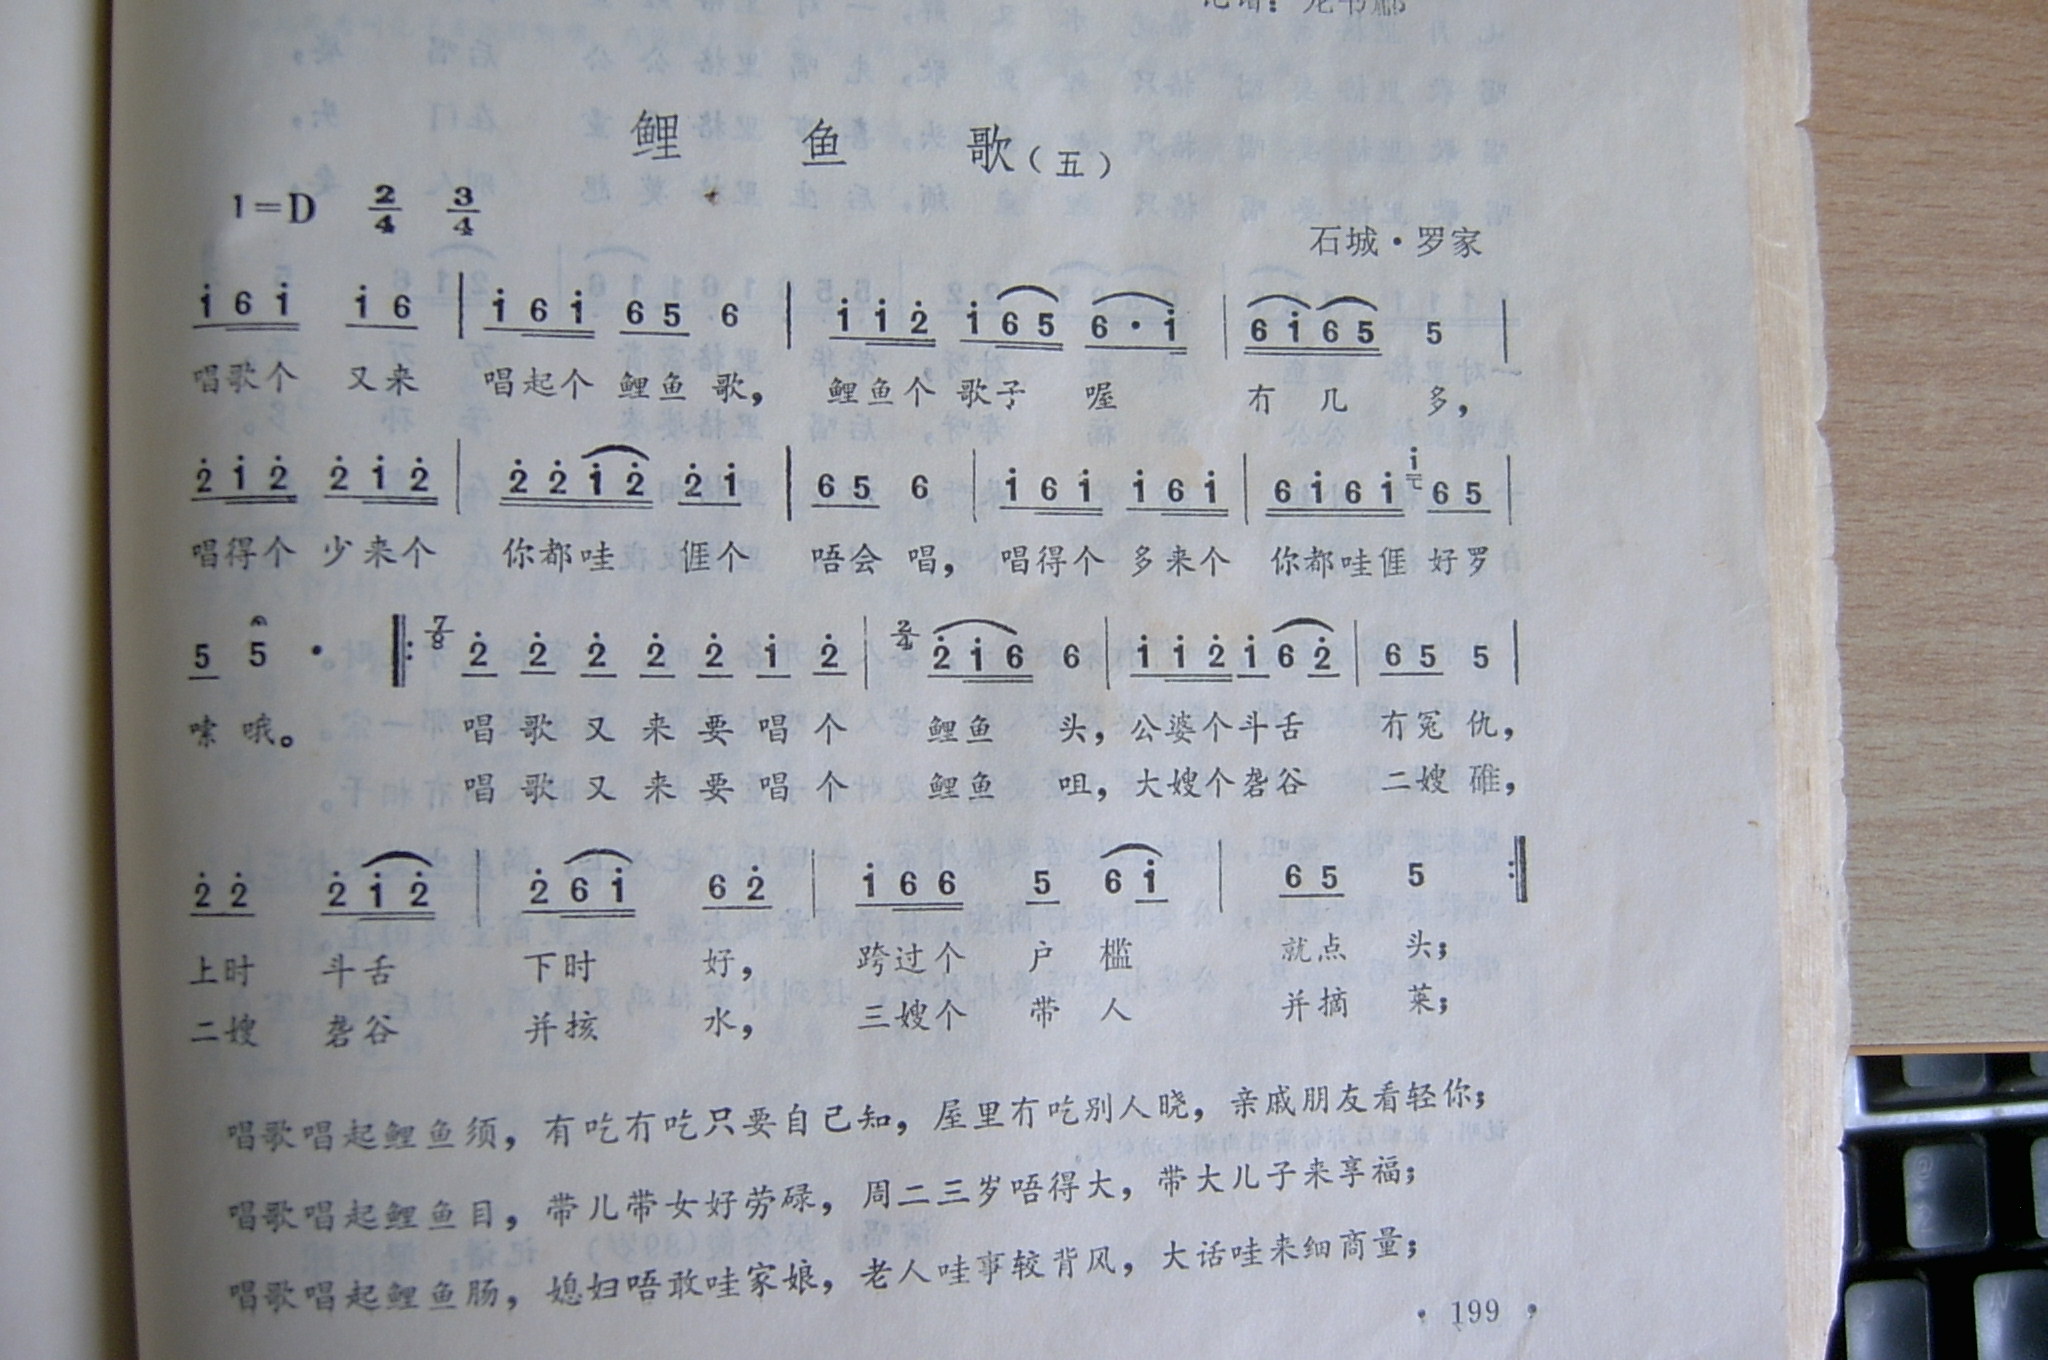 鲤 鱼 歌（五）
1=D 2/4 3/4
石城·罗家
i 6 i i 6 | i 6 i 6 5 6 | i i 2 i 6 5 6 · i | 6 i 6 5 5 |
唱歌个 又来 唱起个 鲤鱼 歌， 鲤鱼个 歌子 喔 冇 几 多，
2 i 2 2 i 2 | 2 2 i 2 2 i | 6 5 6 | i 6 i i 6 i | 6 i 6 i i 6 5 |
唱得个 少来个 你都哇 𠊎个 唔会 唱， 唱得个 多来个 你都哇𠊎 好罗
5 5 · 7/8 2 2 2 2 2 i 2 | 2/4 2 i 6 6 | i i 2 i 6 2 | 6 5 5 |
嗦 哦。 唱 歌 又 来 要 唱 个 鲤鱼 头， 公婆个斗舌 冇冤 仇，
唱 歌 又 来 要 唱 个 鲤鱼 咀， 大嫂个砻谷 二嫂 碓，
2 2 2 i 2 | 2 6 i 6 2 | i 6 6 5 6 i | 6 5 5
上时 斗舌 下时 好， 跨过个 户 槛 就点 头；
二嫂 砻谷 并㧡 水， 三嫂个 带 人 并摘 菜；
唱歌唱起鲤鱼须，有吃冇吃只要自己知，屋里冇吃别人晓，亲戚朋友看轻你；
唱歌唱起鲤鱼目，带儿带女好劳碌，周二三岁唔得大，带大儿子来享福；
唱歌唱起鲤鱼肠，媳妇唔敢哇家娘，老人哇事较背风，大话哇来细商量；
· 199 ·